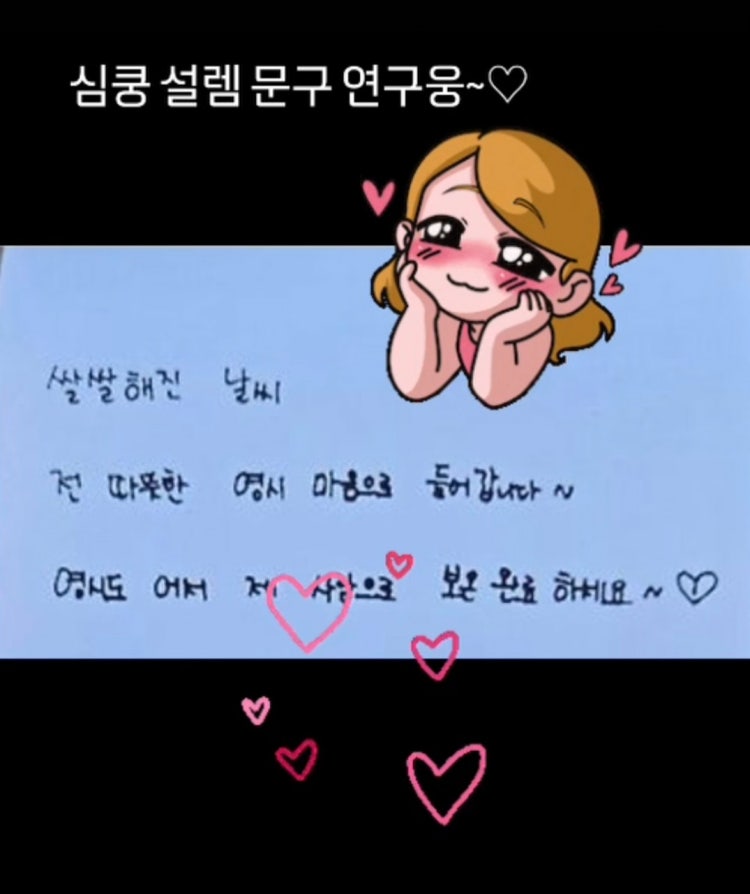 심쿵 설렘 문구 연구웅~♡
쌀쌀해진 날씨
전 따뜻한 영시 마음으로 들어갑니다~
영시도 어서 저 사람으로 보온 완료 하세요~♡